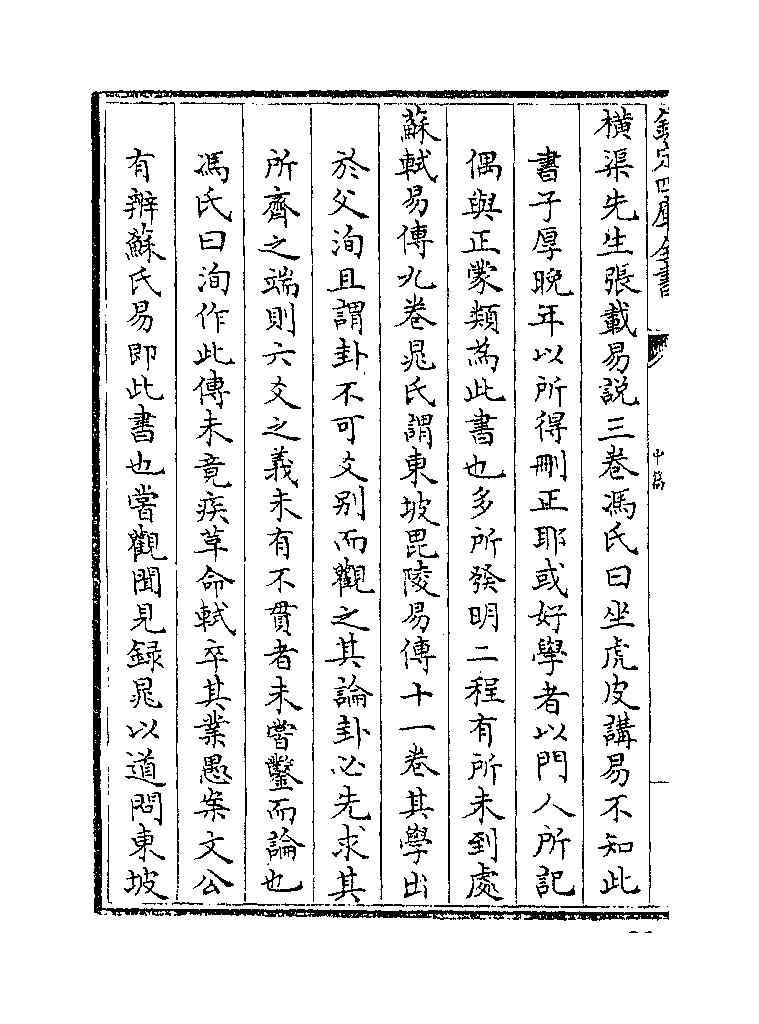 欽定四庫全書
中篇
橫渠先生張載易說三卷馮氏曰坐虎皮講易不知此
書子厚晚年以所得刪正耶或好學者以門人所記
偶與正蒙類為此書也多所發明二程有所未到處
蘇軾易傳九卷晁氏謂東坡毘陵易傳十一卷其學出
於父洵且謂卦不可爻别而觀之其論卦必先求其
所齊之端則六爻之義未有不貫者未嘗鑿而論也
馮氏曰洵作此傳未竟疾革命軾卒其業愚案文公
有辨蘇氏易即此書也嘗觀聞見録晁以道問東坡